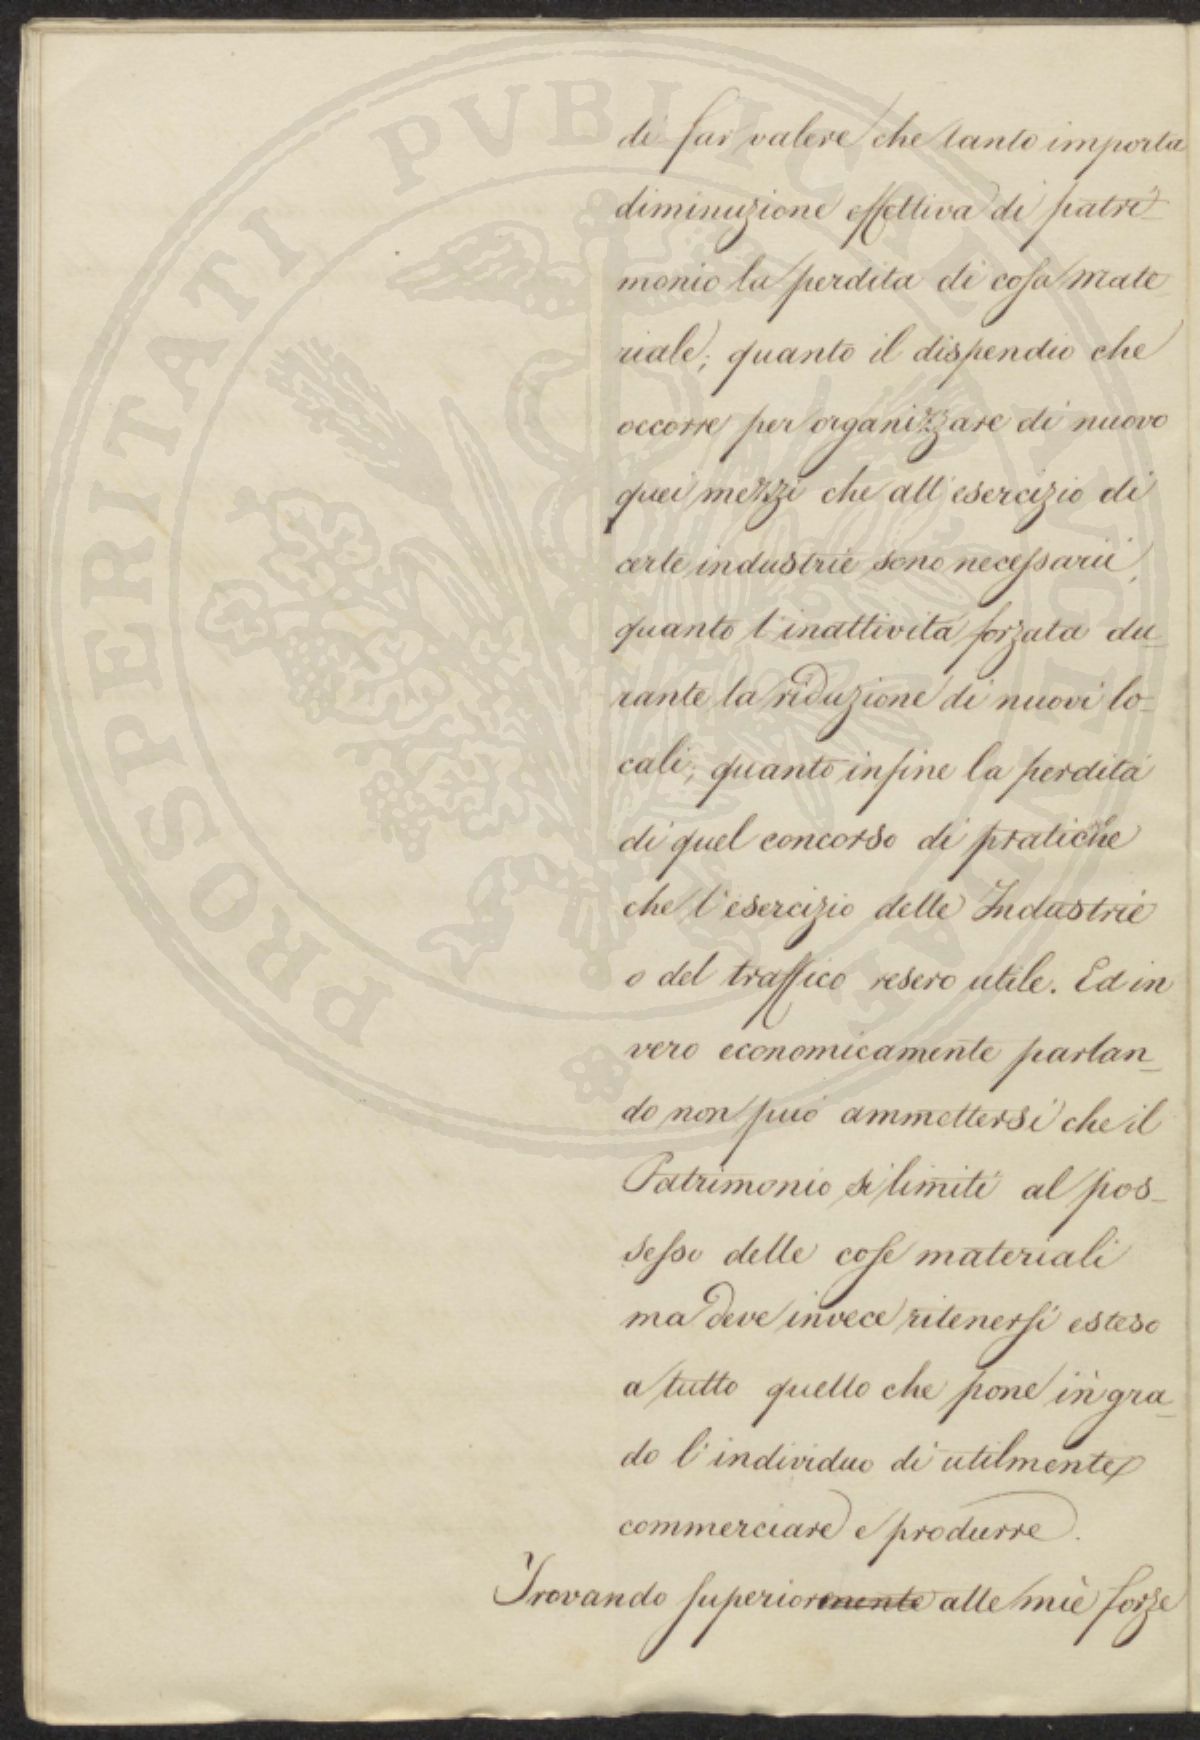 PROSPERITATI PVBLICAE AVGENDAE
di far valere che tanto importa
diminuzione effettiva di patri-
monio la perdita di cosa mate-
riale; quanto il dispendio che
occorre per organizzare di nuovo
quei mezzi che all'esercizio di
certe industrie sono necessarii,
quanto l'inattività forzata du-
rante la riduzione di nuovi lo-
cali; quanto infine la perdita
di quel concorso di pratiche
che l'esercizio delle Industrie
o del traffico resero utile. Ed in
vero economicamente parlan-
do non può ammettersi che il
Patrimonio si limiti al pos-
sesso delle cose materiali
ma deve invece ritenersi esteso
a tutto quello che pone in gra-
do l'individuo di utilmente
commerciare e produrre.
Trovando superiormente alle mie forze